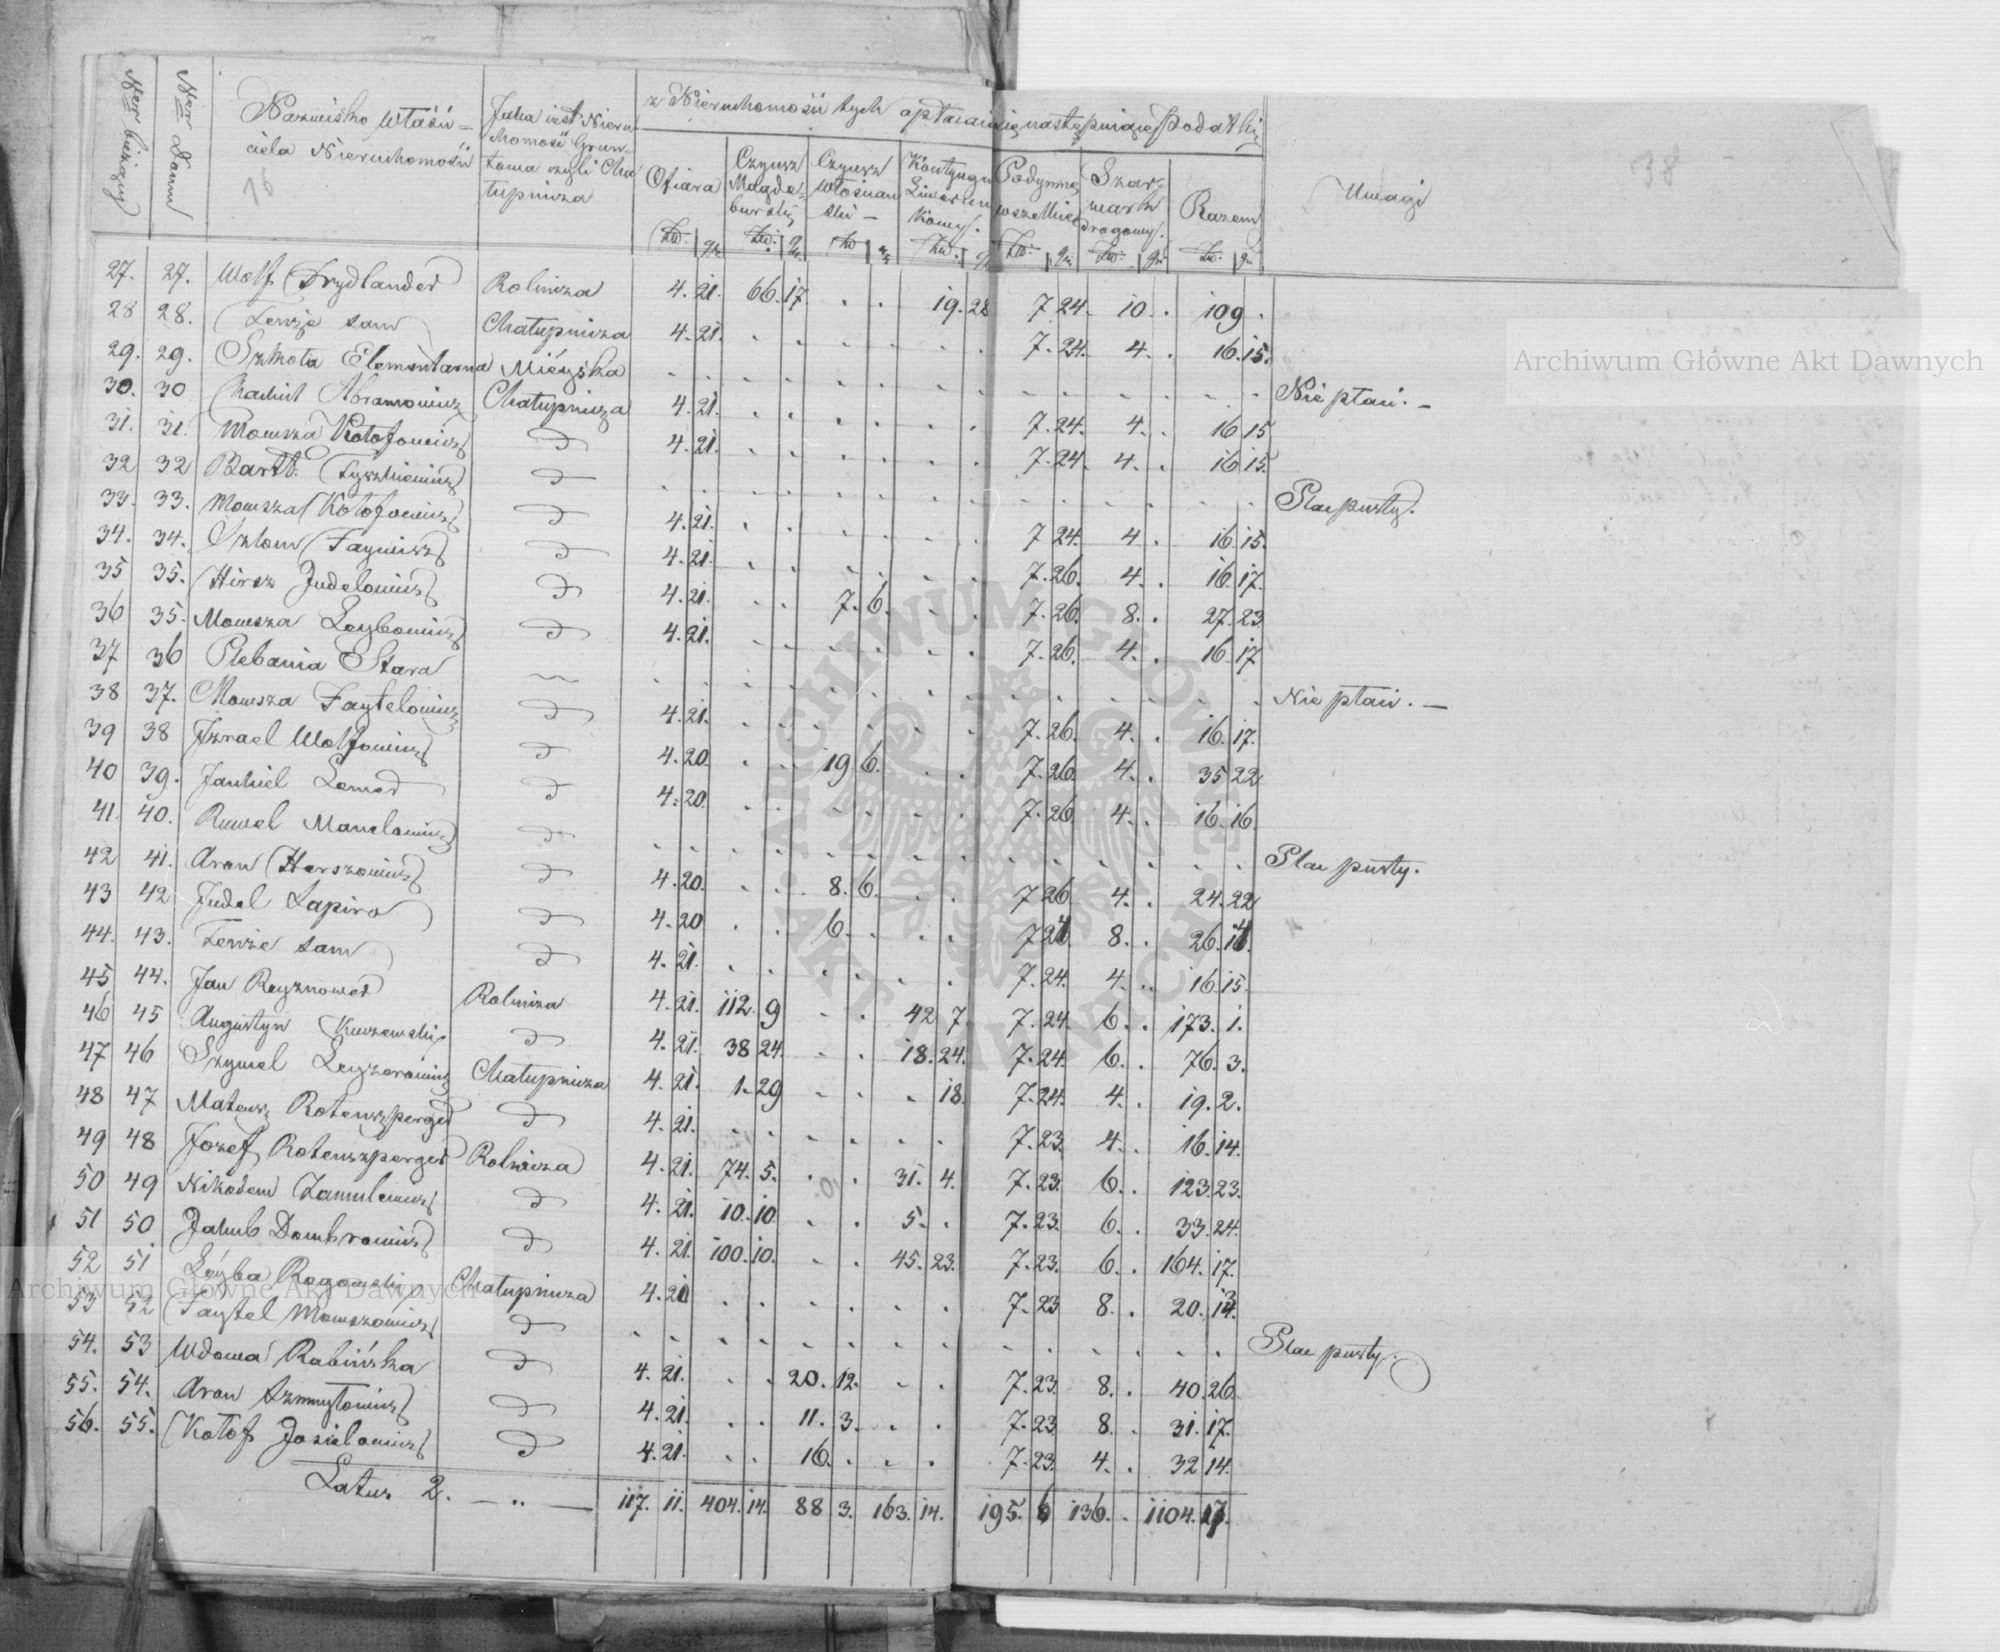 Ner bieżący
Ner Domu
Nazwisko właści=
ciela Nieruchomości
Jaka iest Nieru
chomość Grun=
towa czyli Cha
łupnicza
z Nieruchomości tych opłacaią się następuiące Podatki
Ofiara
Czynsz Magde=burski
Czynsz włościan ski
Kontyngen Liwerun kowy.
Podymne wszelkie
Szar=wark drogowy.
Razem
Uwagi
38
Zło: gr. Zło: gr. Zło gr Zło. gr Zło: gr. Zło: gr. Zło: gr.
27. 27. Wolf Frydlander Rolnicza 4. 21. 66. 17. . . 19. 28 7 24. 10 . 109 .
28 28. Tenże sam Chałupnicza 4. 21. . . . . . . 7. 24. 4. . 16. 15.
29. 29. Szkoła Elementarna Mieyska . . . . . . . . . . . . . . Nie płaci. —
30. 30 Chackiel Abramowicz Chałupnicza 4. 21. . . . . . . 7. 24. 4. . 16 15
31. 31. Mowsza Kołofowicz d 4. 21. . . . . . . 7. 24. 4. . 16 15.
32 32 Bartł. Tyszkiewicz d . . . . . . . . . . . . . . Plac pusty.
33. 33. Mowsza Kołofowicz d 4. 21. . . . . . . 7 24. 4. . 16. 15.
34. 34. Szlom Faymisz d 4. 21. . . . . . . 7. 26. 4. . 16. 17.
35 35. Hirsz Judelowicz d 4. 21. . . 7. 6. . . 7. 26. 8. . 27. 23
36 35. Mowsza Leybowicz d 4. 21. . . . . . . 7. 26. 4. . 16. 17
37 36 Plebania Stara . . . . . . . . . . . . . . Nie płaci. —
38 37. Mowsza Faytelowicz d 4. 21. . . . . . . 7. 26. 4. . 16. 17.
39 38 Izrael Wolfowicz d 4. 20. . . 19 6. . . 7. 26. 4. . 35 22
40 39. Jankiel Lemer d 4. 20. . . . . . . 7. 26. 4. . 16. 16.
41. 40. Ruwel Manelowicz d . . . . . . . . . . . . . . Plac pusty.
42 41. Aron Herszowicz d 4. 20. . . 8. 6. . . 7 26 4. . 24. 22
43 42 Judel Lapiro d 4. 20 . . 6. . . . 7 24. 8. . 26. 14.
44. 43. Tenże sam d 4. 21. . . . . . . 7. 24. 4. . 16. 15.
45 44. Jan Reyznower Rolnicza 4. 21. 112. 9 . . 42 7. 7. 24. 6. . 173. 1.
46 45 Augustyn Kuczewski d 4. 21. 38 24. . . 18. 24. 7. 24. 6. . 76. 3.
47 46 Szymel Leyzerowicz Chałupnicza 4. 21. 1. 29 . . . 18. 7. 24. 4. . 19. 2.
48 47 Mateusz Rotenszperger d 4. 21. . . . . . . 7. 23. 4. . 16. 14.
49 48 Jozef Rotenszperger Rolnicza 4. 21. 74. 5. . . 31. 4. 7. 23. 6. . 123. 23.
50 49 Nikodem Zamulewicz d 4. 21. 10. 10. . . 5. . 7. 23. 6. . 33. 24.
51 50. Jakub Dombrowicz d 4. 21. 100. 10. . . 45. 23. 7. 23. 6. . 164. 17.
52 51 Leyba Rogowski Chałupnicza 4. 20 . . . . . . 7. 23 8. . 20. 13.
53 52 Faytel Mowszowicz d . . . . . . . . . . . . . . Plac pusty.
54. 53 Wdowa Rabińska d 4. 21. . . 20. 12. . . 7. 23. 8. . 40. 26.
55. 54. Aron Szmuyłowicz d 4. 21. . . 11. 3. . . 7. 23 8 . 31. 17.
56. 55. Kołof Josielowicz d 4. 21. . . 16. . . . 7. 23. 4. . 32 14.
Latus 2. — „ — 117. 11. 404. 14. 88 3. 163. 14. 195. 6 136. . 1104. 17.
Archiwum Główne Akt Dawnych
Archiwum Główne Akt Dawnych
ARCHIWUM GŁÓWNE AKT DAWNYCH